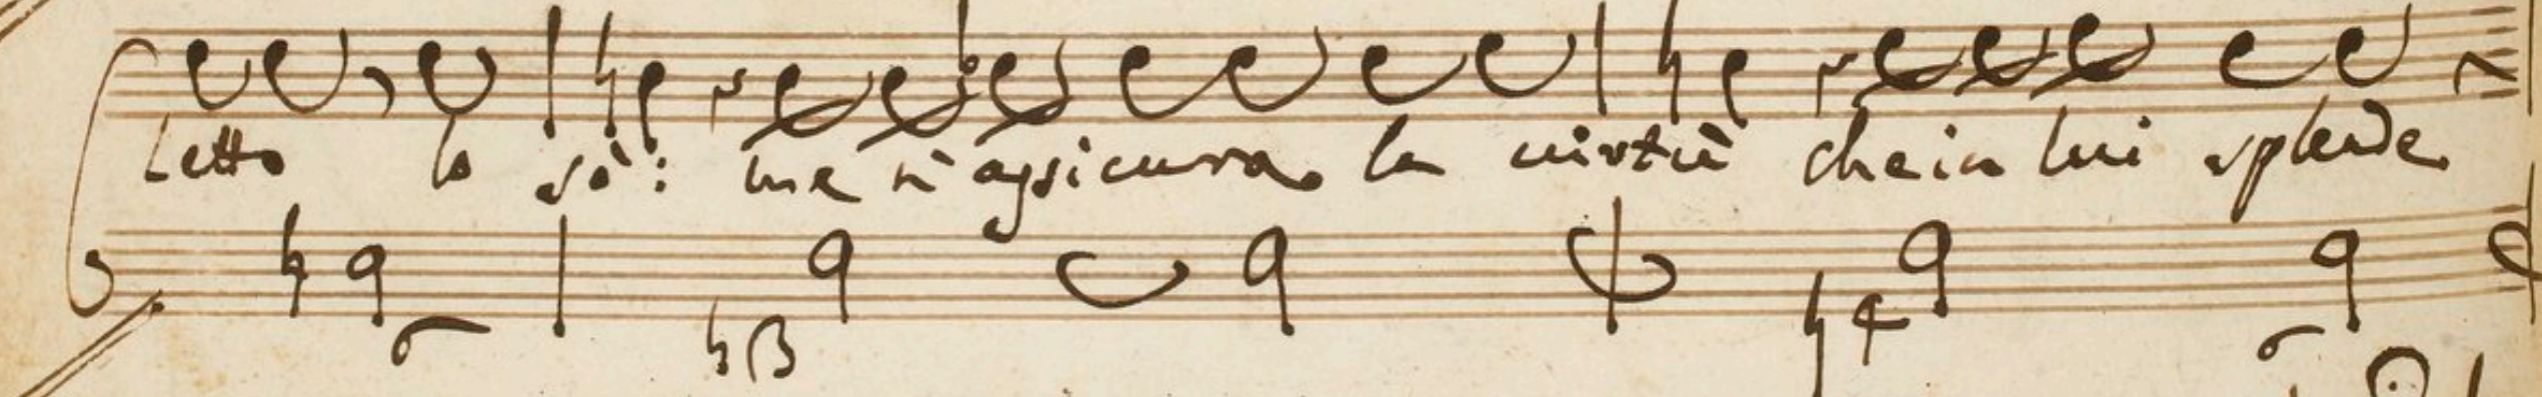 letto lo sò: me n'assicura la uirtù che in lui splende